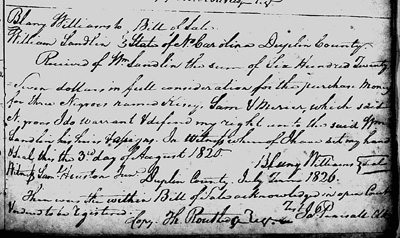 Blany Williams to Bill of Sale
William Sandlin } State of No Carolina Duplin County
Received of Wm Sandlin the sum of Six Hundred Twenty
Seven dollars in full consideration for the purchase money
for three Negroes named Sam & which said
Negroes I do warrant & defend my right unto the said Wm
Sandlin his heirs & assigns. In witness whereof I have set my hand
& seal this the 3d day of August 1825
Williams seal
Houston Junr Duplin County, July Term 1826.
Then was the within Bill of Sale acknowledged in open Court
& ordered to be registered.
Copy.